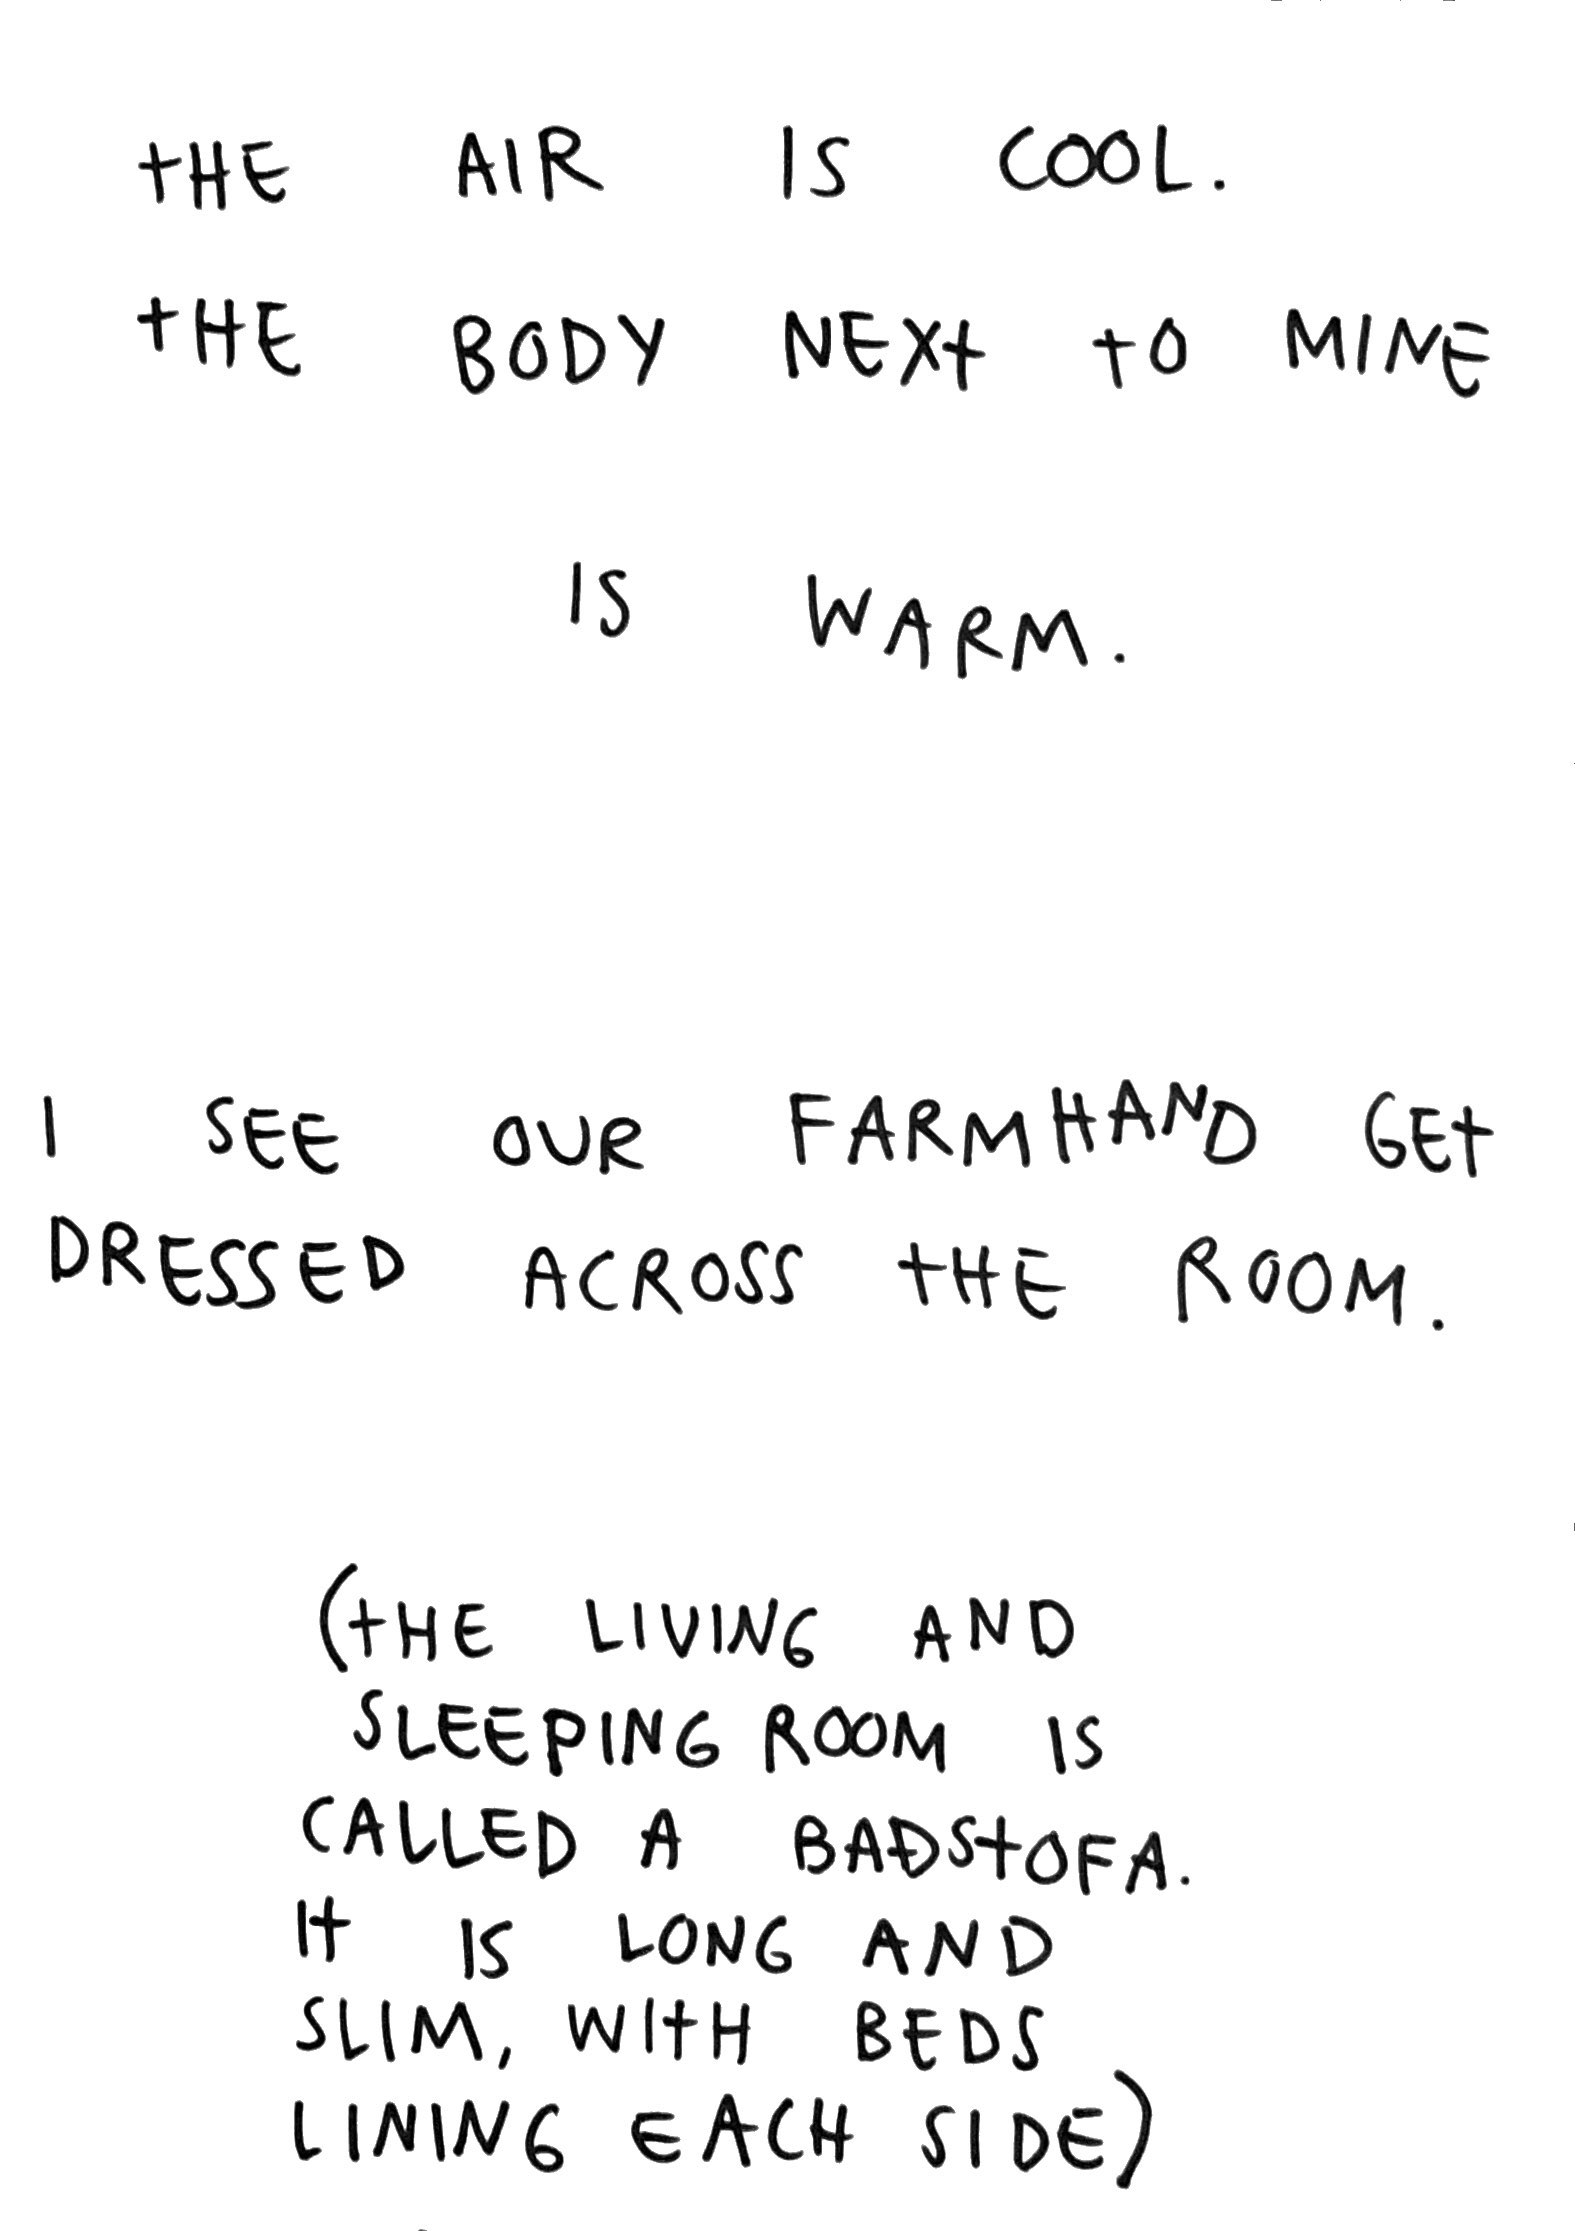 THE AIR IS COOL.
THE BODY NEXT TO MINE
IS WARM.
I SEE OUR FARMHAND GET
DRESSED ACROSS THE ROOM.
(THE LIVING AND
SLEEPING ROOM IS
CALLED A BAÐSTOFA.
IT IS LONG AND
SLIM, WITH BEDS
LINING EACH SIDE)